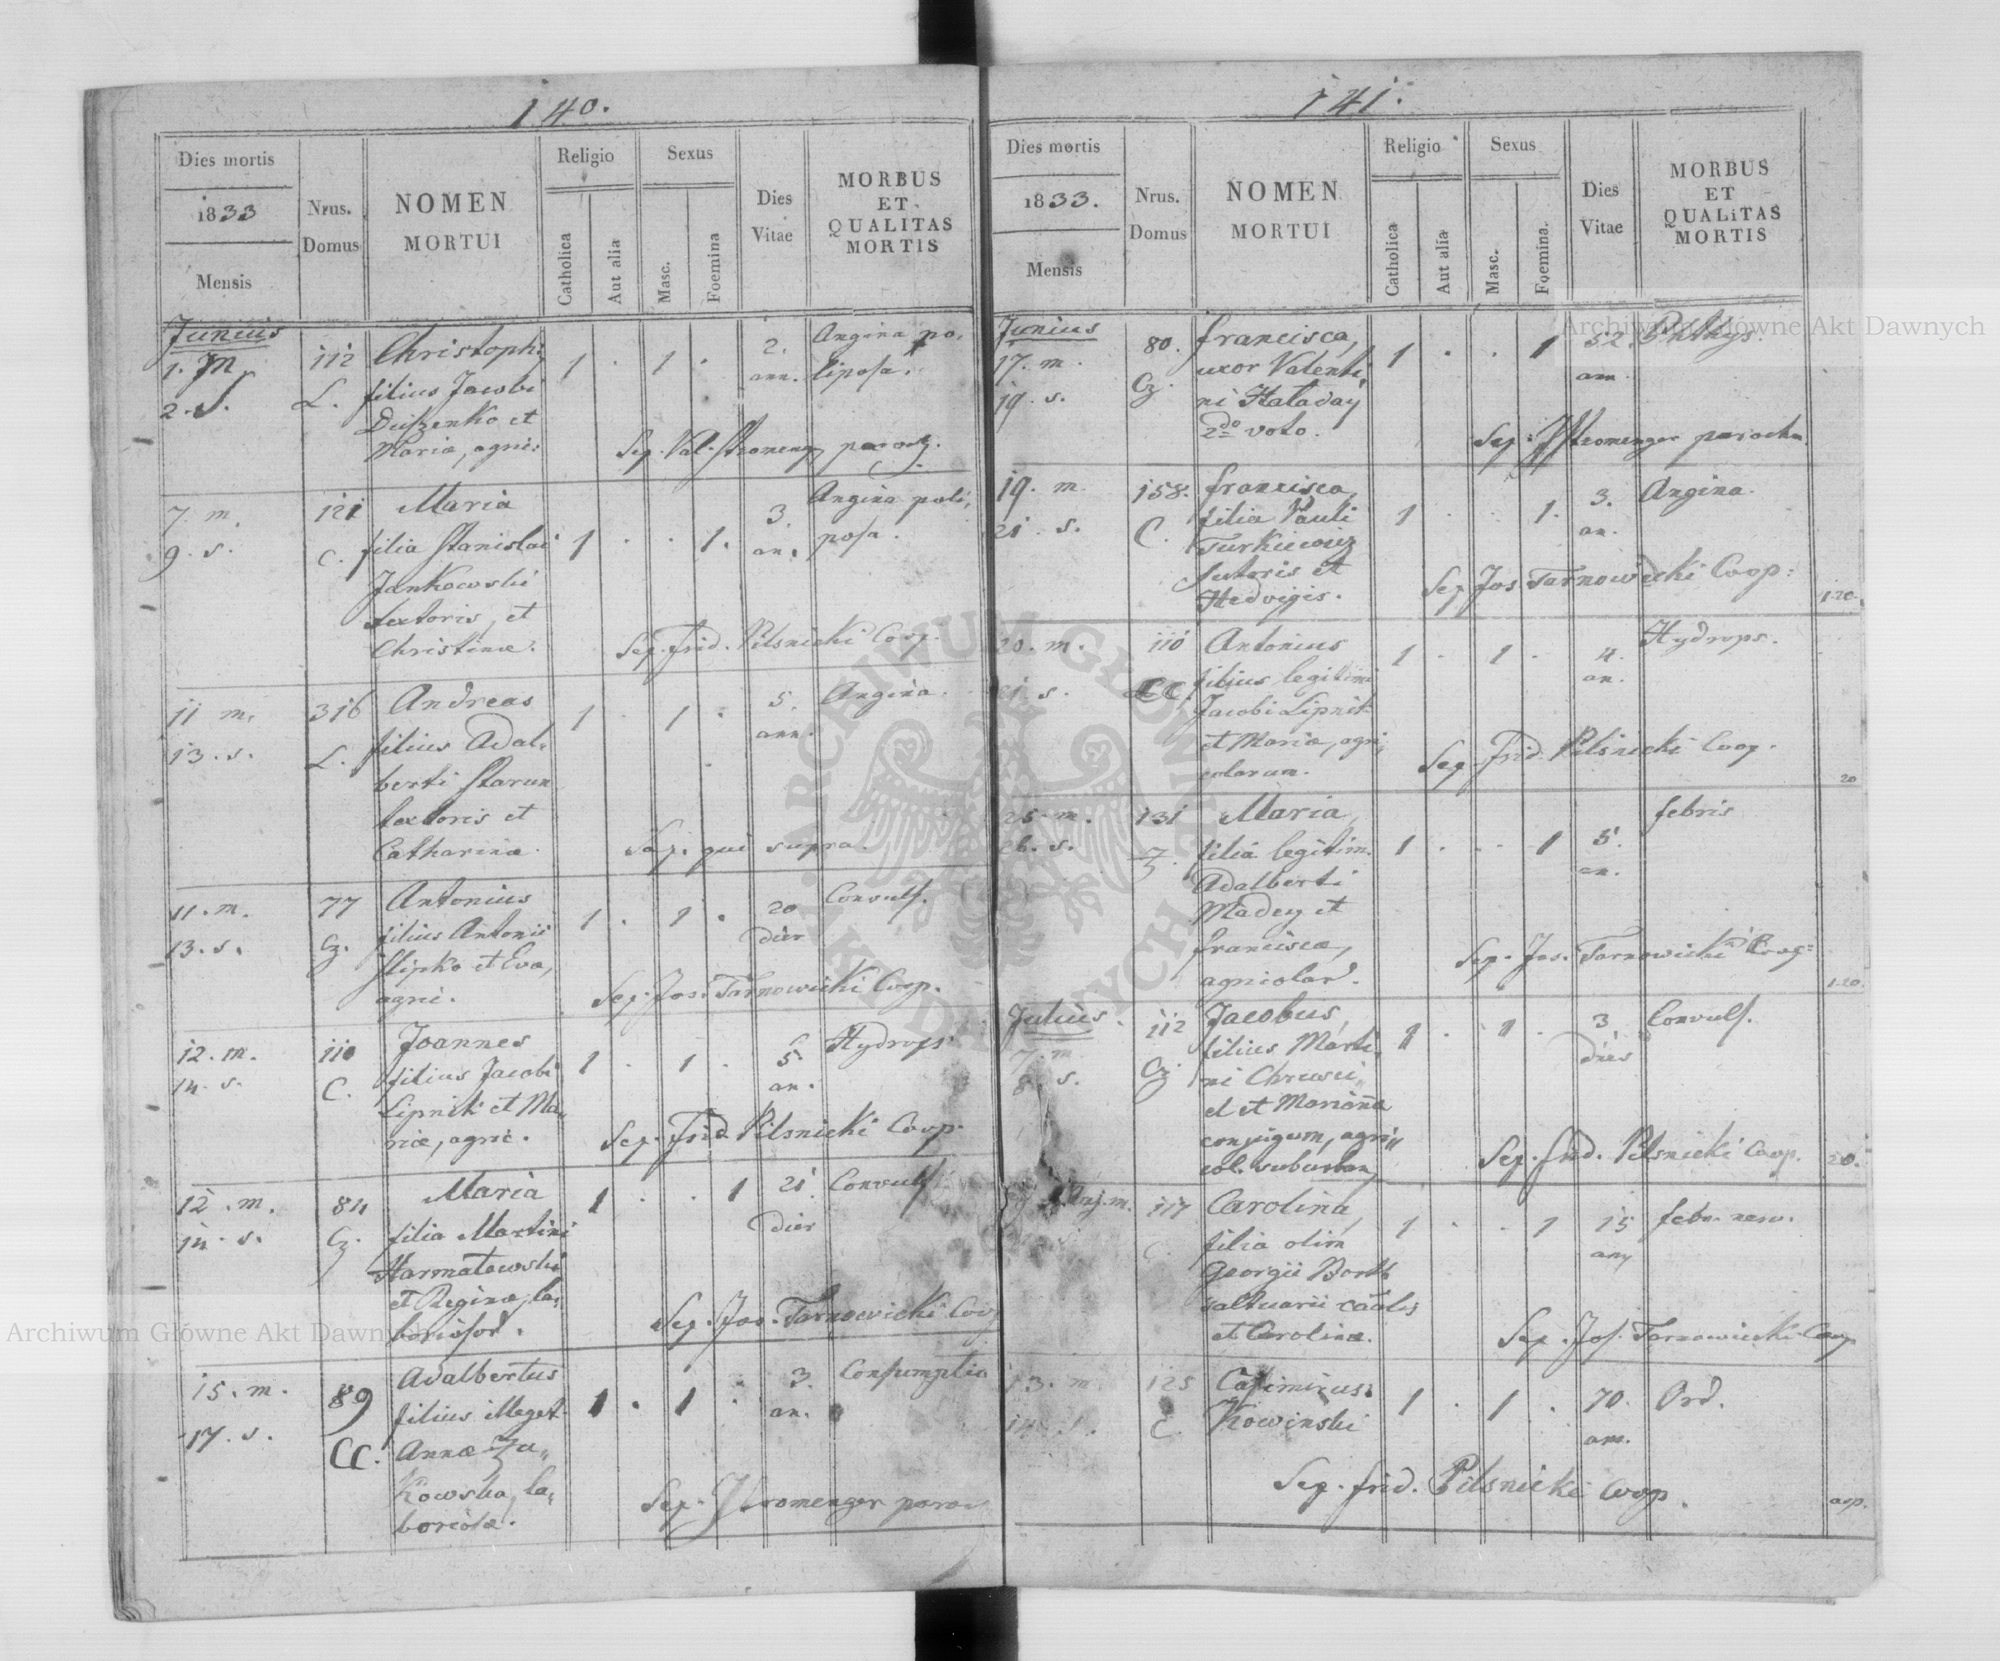 140.
Dies mortis
1833
Mensis
Nrus.
Domus
NOMEN
MORTUI
Religio
Catholica
Aut alia
Sexus
Masc.
Foemina
Dies
Vitae
MORBUS
ET
QUALITAS
MORTIS
Junius
1. m.
2. S.
112
L.
Christoph,
filius Jacobi
et
Maria, agric:
1 . 1 .
2.
ann.
Angina po,
liposa.
Sep. Val. Stromenger paroch.
7. m.
9. s.
121
C.
Maria
filia Stanislai
Jankowski
textoris, et
Christinæ.
1 . . 1.
3.
an.
Angina poli,
posa.
Sep. frid. Pilsnicki Coop.
11 m.
13. s.
316
L.
Andreas
filius Adal,
berti Starun
textoris et
Catharinæ.
1 . 1 .
5.
ann.
Angina.
Sep. qui supra.
11. m.
13. s.
77
Cz.
Antonius
filius Antonii
Slipko et Eva,
agric.
1 . 1 .
20
dier
Convuls.
Sep. Jos. Tarnowicki Coop.
12. m.
14. s.
110
C.
Joannes
filius Jacobi
Lipnik et Ma,,
riæ, agric.
1 . 1 .
5
an.
Hydrops
Sep. Frid. Pilsnicki Coop.
12. m.
14. s.
84
Cz.
Maria
filia Martini
Harmatowski
et Reginæ, la,,
1 . . 1
21.
dier
Convuls.
Sep. Jos. Tarnowicki Coop
15. m.
17. s.
89
CC.
Adalbertus
filius illeget.
Annæ Zu,,
kowska, la,,
boriosæ.
1 . 1 .
3.
an.
Consumptio
Sep. Stromenger paroc
141.
Dies mortis
1833.
Mensis
Nrus.
Domus
NOMEN
MORTUI
Religio
Catholica
Aut alia
Sexus
Masc.
Foemina.
Dies
Vitae
MORBUS
ET
QUALITAS
MORTIS
Junius
17. m.
19. s.
80.
Cz.
francisca,
uxor Valenti,
ni Haladay
2do voto.
1 . . 1
52.
ann.
Phthys.
Sep. Stromenger parochus.
19. m.
21. s.
158.
C.
francisca,
filia Pauli
Turkiewicz
Sutoris et
Hedvigis.
1 . . 1.
3.
an.
Angina.
Sep Jos Tarnowicki Coop:
1.20.
20. m.
21. s.
110
CC.
Antonius
filius legitimi
Jacobi Lipnik
et Mariæ, agri,
colarum.
1 . 1 .
4.
an.
Hydrops.
Sep. Frid. Pilsnicki Coop.
20
25. m.
26. s.
131
Z.
Maria,
filia legitim.
Adalberti
Madey et
franciscæ,
1 . . 1
5.
an.
febris
Sep. Jos. Tarnowicki Coop:
1.20.
Julius.
7. m
8. s.
112
Cz.
Jacobus,
filius Marti,
ni Chruści,,
el et Marianna
conjugum, agri,,
col. suburban,
1 . 1 .
3.
dies
Convuls.
Sep. frid. Pilsnicki Coop.
20.
117
C.
Carolina,
filia olim
Georgii Barth
saltuarii
et Carolinæ.
1 . . 1
15
febr. nerv.
Sep. Jos. Tarnowicki Coop
13. m.
14. s.
125
C.
Casimirus
Kowinski
1 . 1 .
70.
ann.
Ord.
Sep. frid. Pilsnicki Coop.
Archiwum Główne Akt Dawnych
Archiwum Główne Akt Dawnych
ARCHIWUM GŁÓWNE AKT DAWNYCH